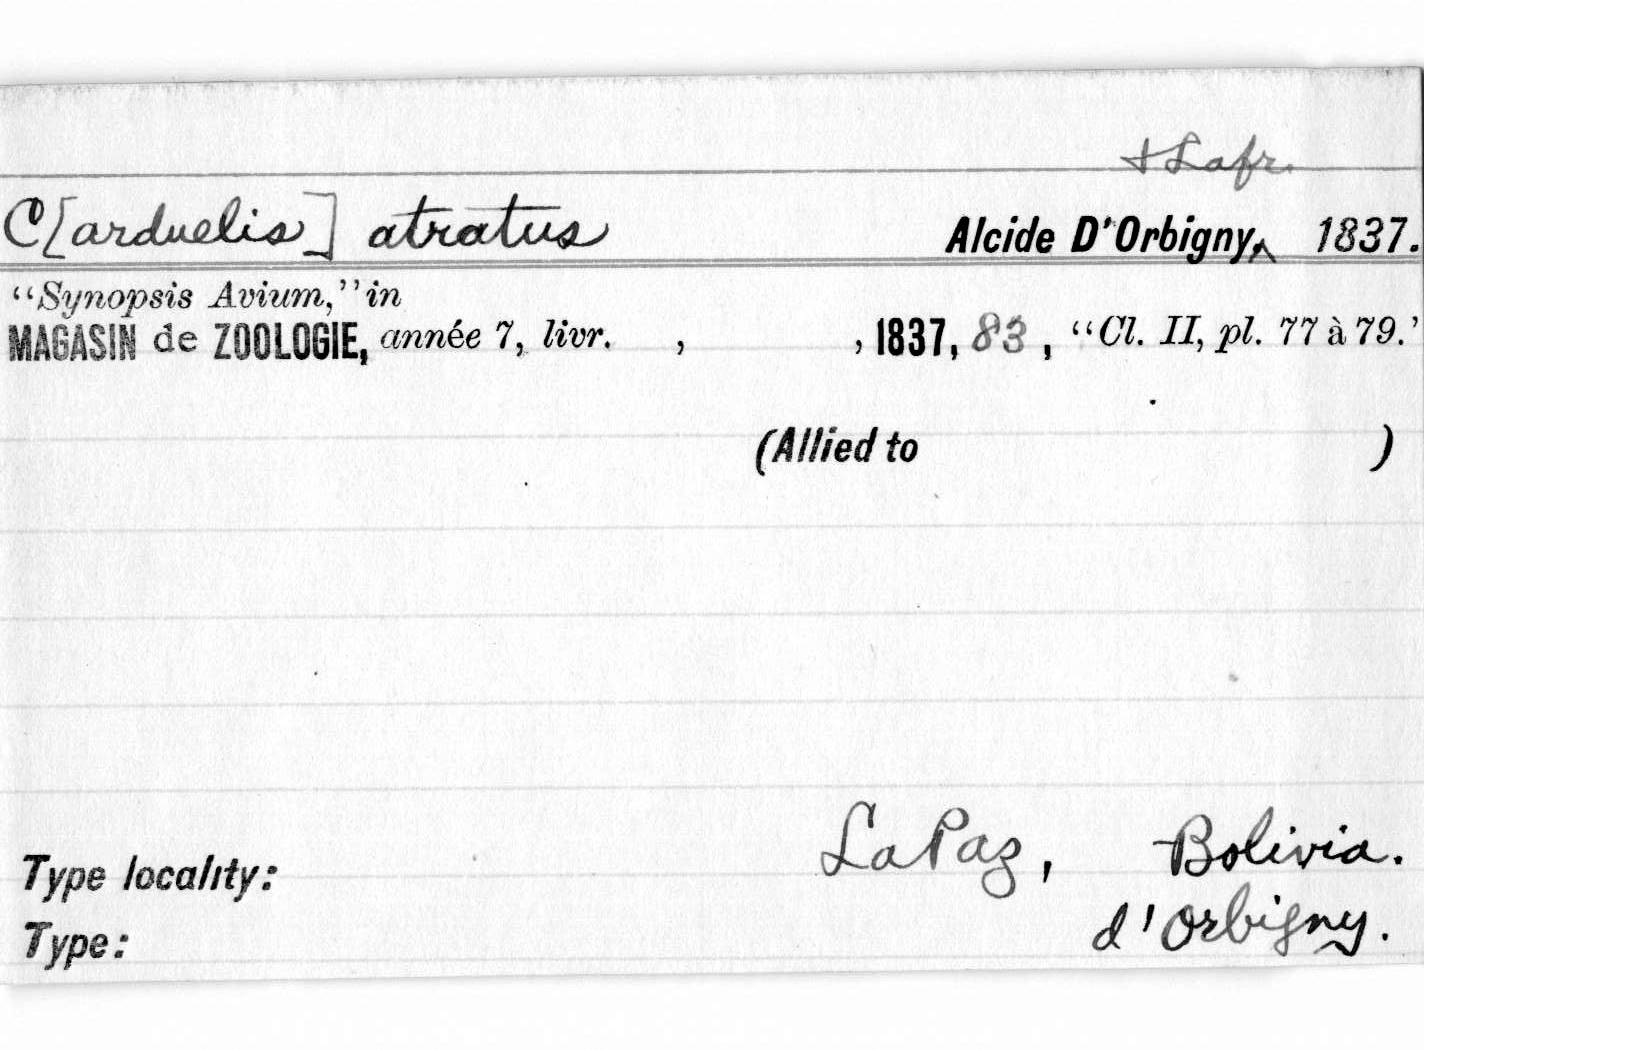 & Lafr.
C[arduelis] atratus Alcide D'Orbigny‸ 1837.
“Synopsis Avium,” in
MAGASIN de ZOOLOGIE, année 7, livr. , , 1837, 83, “Cl. II, pl. 77 à 79.’
(Allied to )
Type locality: La Paz, Bolivia.
Type: d'Orbigny.